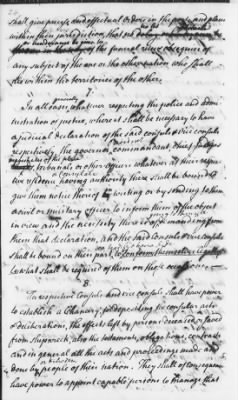 shall give precise and effectual orders in the ports and places
within their jurisdiction, that no
in the funeral
any subject of the one or the other nation who shall
die in them the territories of the other.
7.
generally
In all cases, whatever respecting the police and admi-
nistration of justice, where it shall be necessary to have
a judicial declaration of the said consuls & vice consuls
respectively, the governor, commandant, chief justice
tribunals or other officer whatever of their respec-
tive residence having authority there shall be bound to
give them notice thereof by writing or by sending to them
a civil or military officer to inform them of the object
in view and the necessity there is of
them that declaration, and the said Consuls & vice consuls
shall be bound on their part to
to what shall be required of them on those occasions.
8.
The respective Consuls and vice consuls shall have power
to establish a Chancery, for depositing the consular acts
& deliberations, the effects left by persons deceased, or saved
from shipwreck, also the testaments, obligations, contracts
and in general all the acts and proceedings made and
done by people of their nation. They shall of consequence
have power to appoint capable persons to manage that